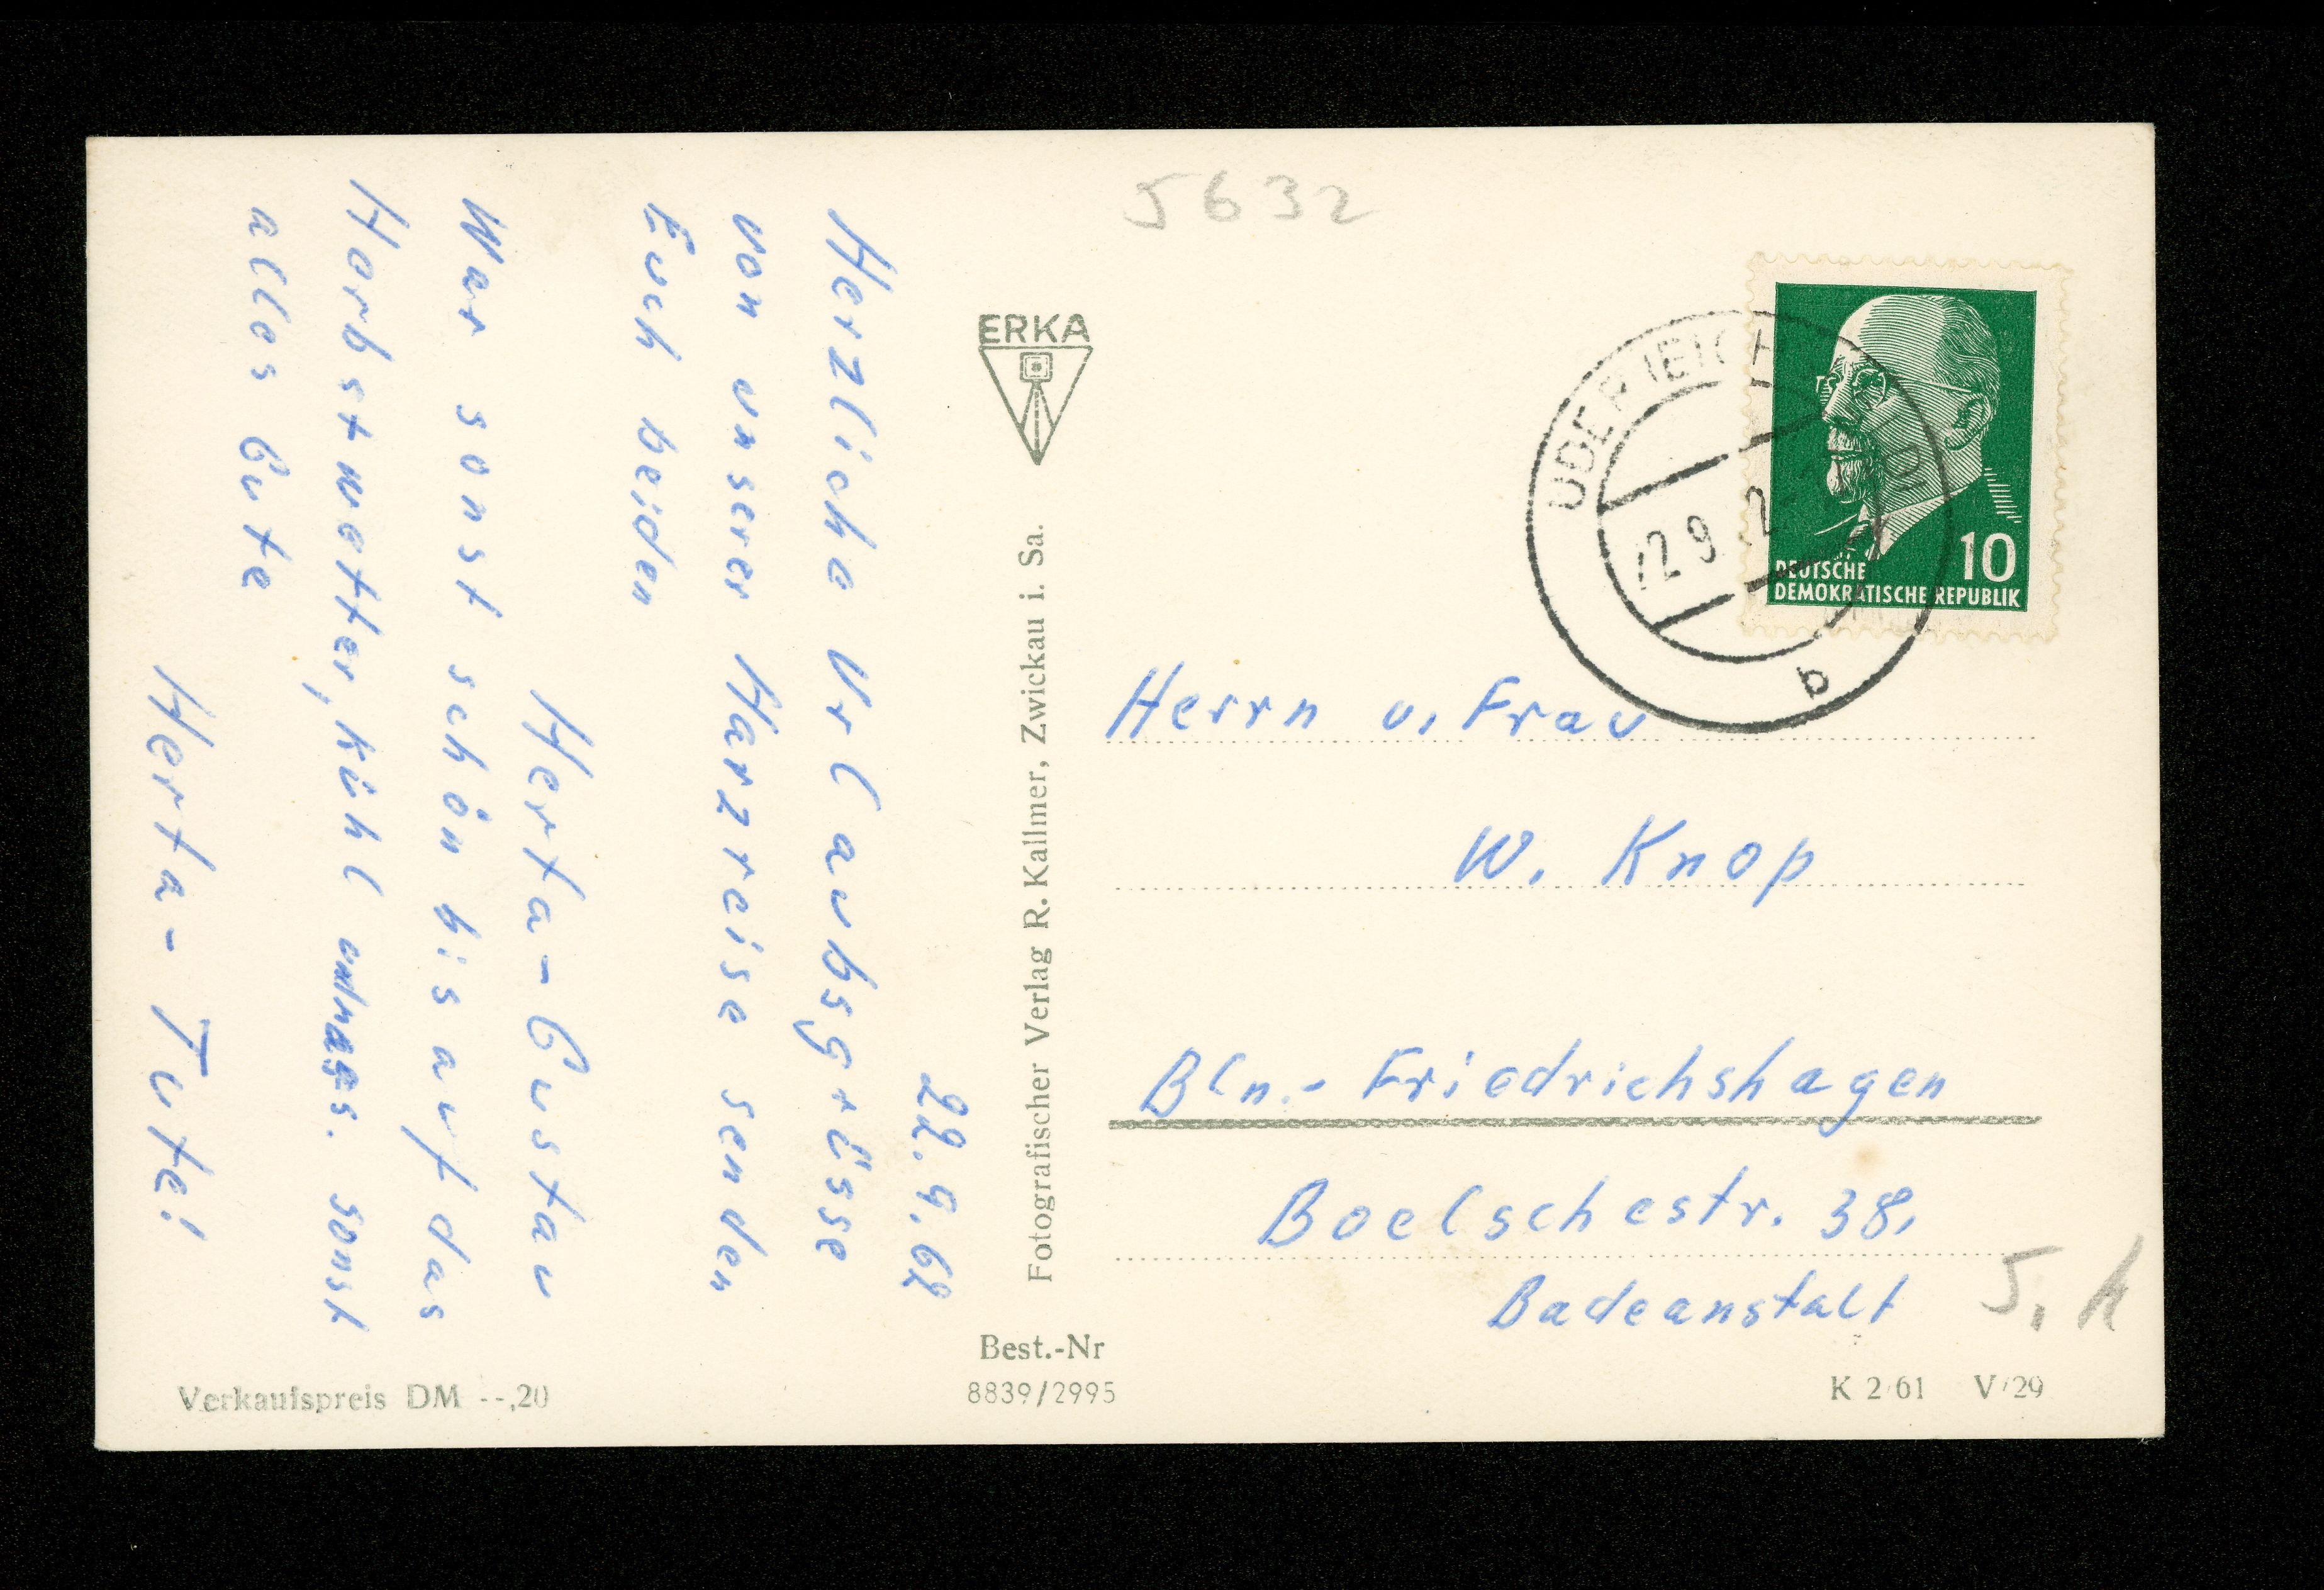 22.9.62
Herzliche Urlaubsgrüsse
von unserer Harzreise senden
Euch beiden
Herta-Gustav
War sonst schön bis auf das
Herbstwetter, kühl sonst
alles Gute
Herta - Tute!
5632
ERKA
Fotografischer Verlag R. Kallmer, Zwickau i. Sa.
DEUTSCHE
DEMOKRATISCHE REPUBLIK
10
b
Herrn u. Frau
W. Knop
Bln.- Friedrichshagen
Boelschestr. 38,
Badeanstalt
Best.-Nr
8839/2995
Verkaufspreis DM --,20
K 2/61 V/29